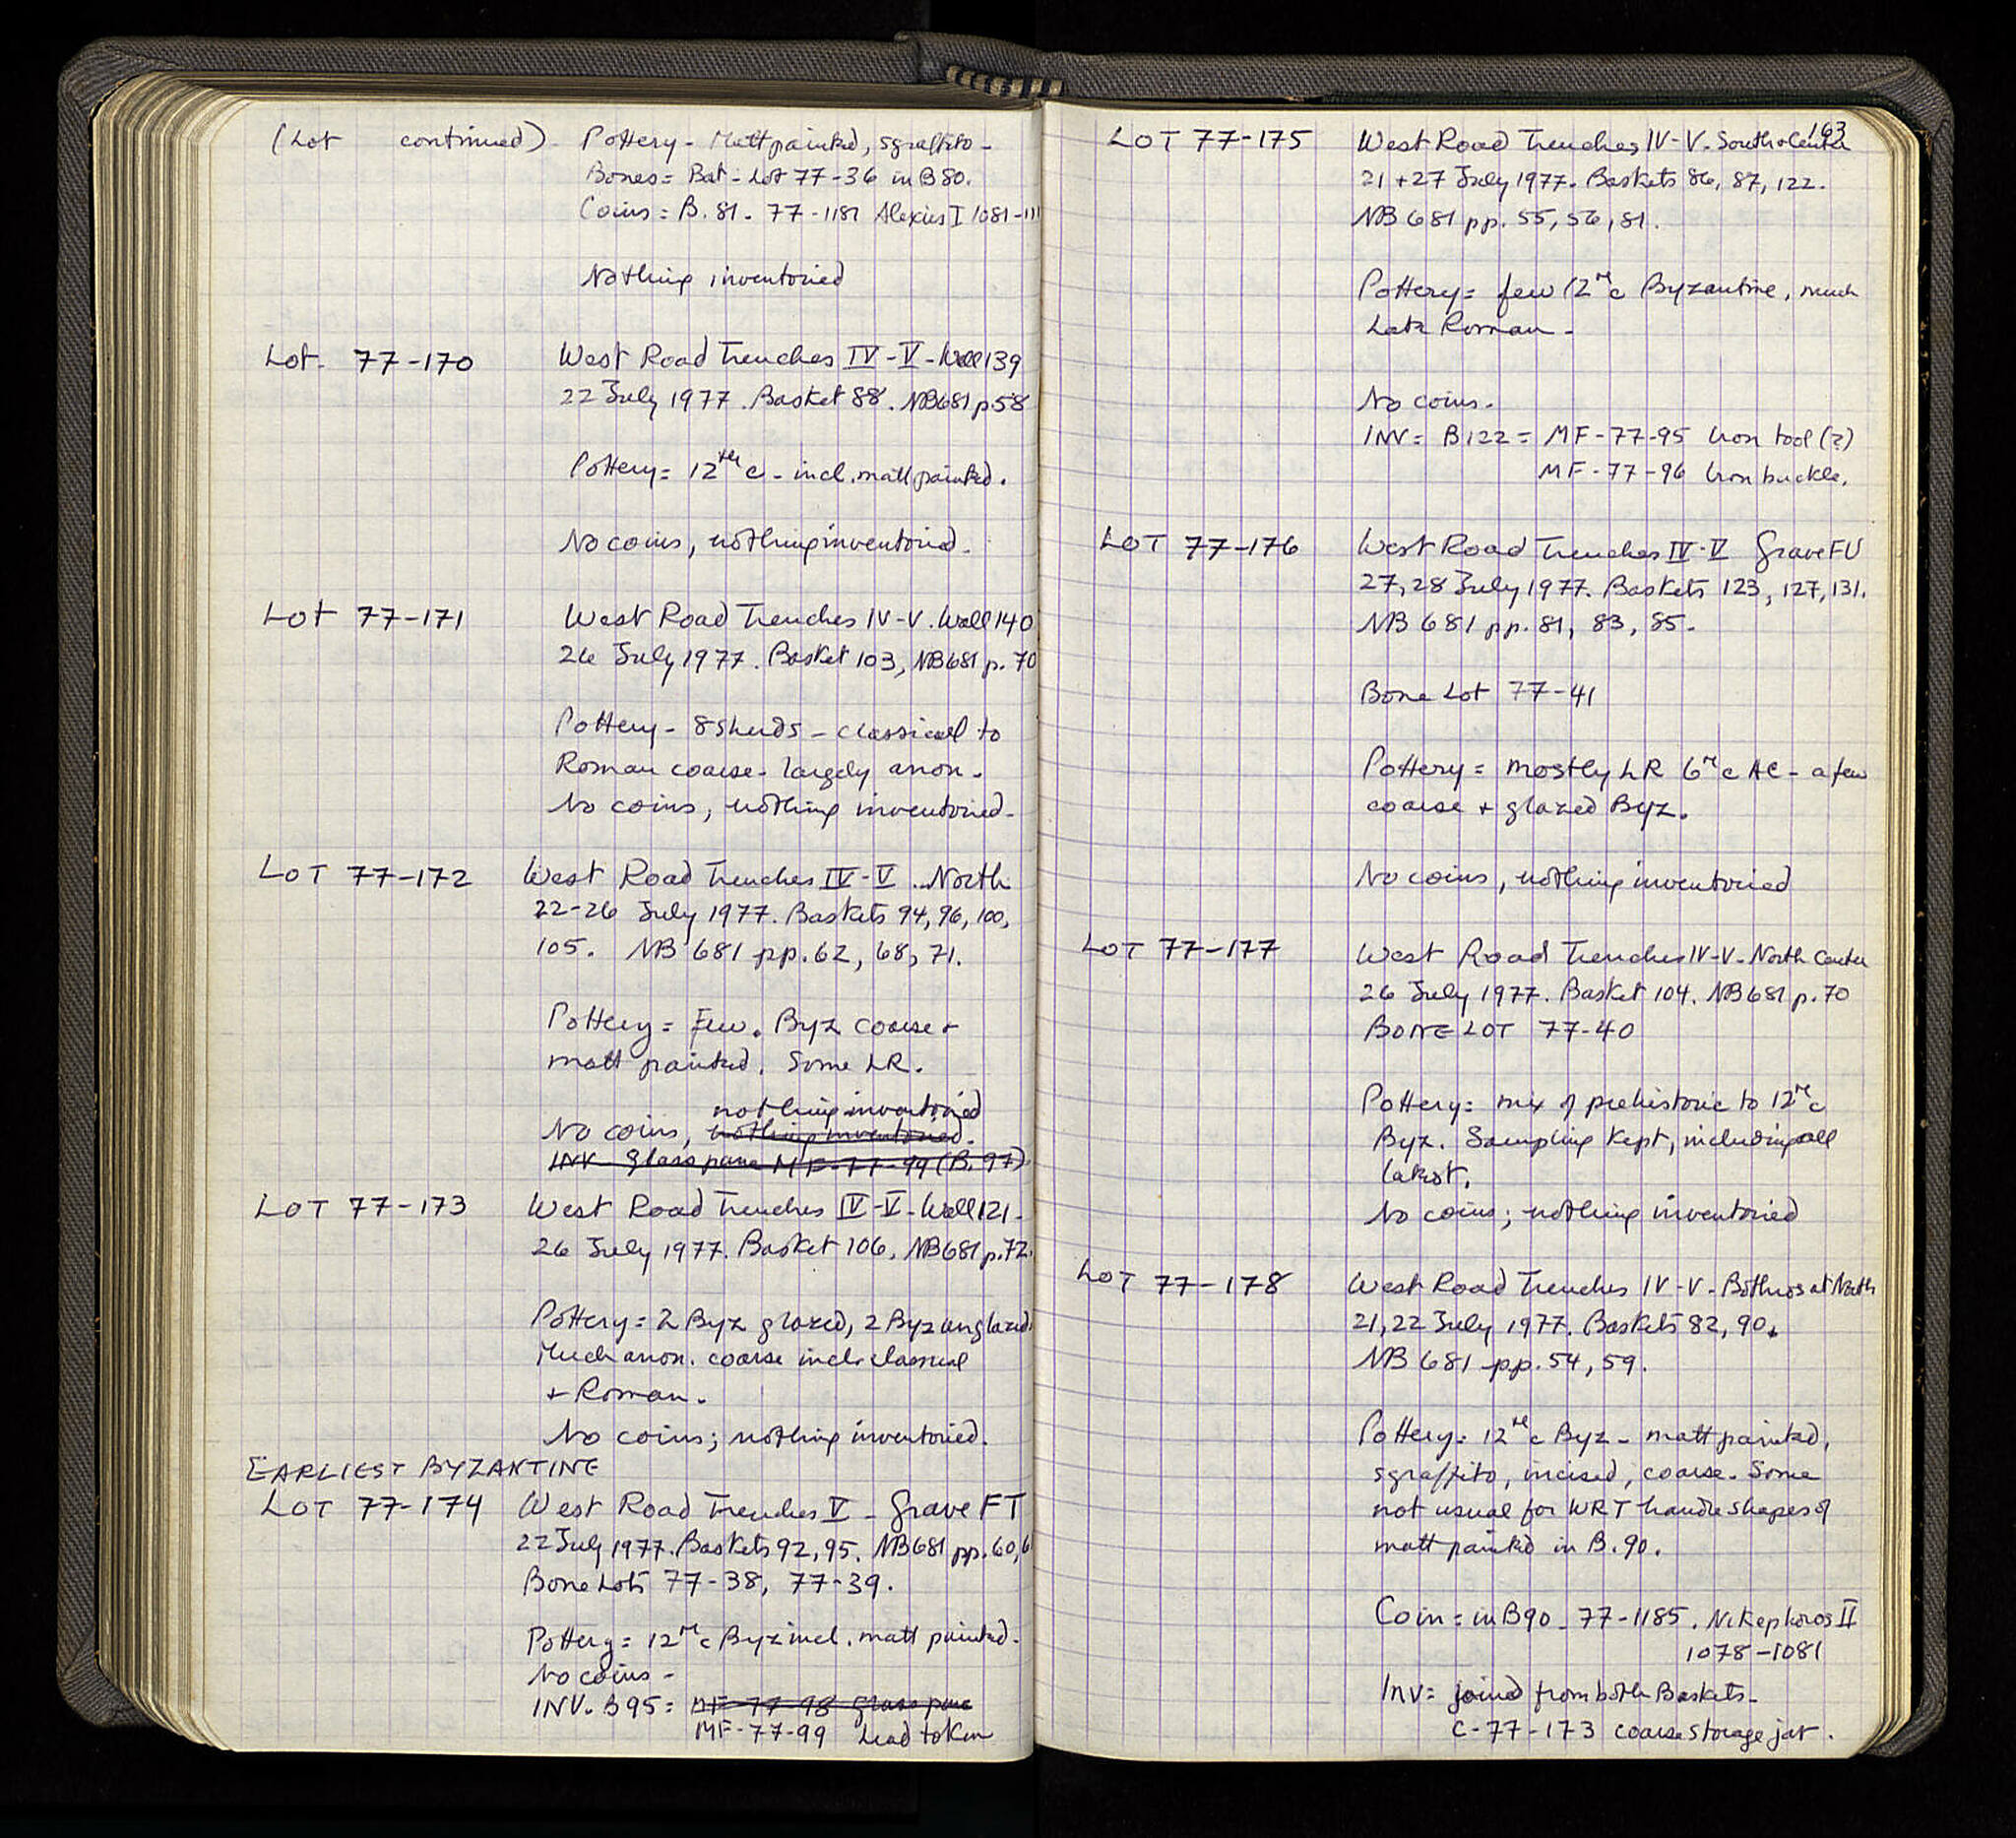 (Lot continued) Pottery - Matt painted, sgraffito -
Bones = Bat - Lot 77-36 in B80.
Coins = B.81. 77-1181 Alexius I 1081-111
Nothing inventoried
Lot. 77-170 West Road Trenches IV-V-Wall 139
22 July 1977. Basket 88. NB681 p58
Pottery = 12th c - incl. matt painted.
No coins, nothing inventoried.
Lot 77-171 West Road Trenches IV-V. Wall 140
26 July 1977. Basket 103, NB681 p. 70
Pottery - 8 sherds - classical to
Roman coarse - largely anon.
No coins, nothing inventoried -
LOT 77-172 West Road Trenches IV-V - North
22-26 July 1977. Baskets 94, 96, 100,
105. NB 681 pp. 62, 68, 71.
Pottery = Few. Byz coarse +
matt painted. Some LR.
nothing inventoried
No coins, nothing inventoried.
INV - glass pane MF-77-99 (B.97)
LOT 77-173 West Road Trenches IV-V-Wall 121-
26 July 1977. Basket 106, NB681 p.72.
Pottery = 2 Byz glazed, 2 Byz unglazed.
Much anon. coarse incl. classical
+ Roman.
No coins; nothing inventoried.
EARLIEST BYZANTINE
LOT 77-174 West Road Trenches V - Grave FT
22 July 1977. Baskets 92, 95. NB681 pp. 60, 6
Bone Lots 77-38, 77-39.
Pottery = 12th c Byz incl. matt painted.
No coins -
INV. B95 = MF-77-98 glass pane
MF-77-99 Lead token
163
LOT 77-175 West Road Trenches IV-V. South + Center
21 + 27 July 1977. Baskets 86, 87, 122.
NB 681 pp. 55, 56, 81.
Pottery = few 12th c Byzantine, much
Late Roman -
No coins.
INV = B122 = MF-77-95 Iron tool (?)
MF-77-96 Iron buckle.
LOT 77-176 West Road Trenches IV-V Grave FU
27, 28 July 1977. Baskets 123, 127, 131.
NB 681 pp. 81, 83, 85.
Bone Lot 77-41
Pottery = mostly LR 6th c AC - a few
coarse + glazed Byz.
No coins, nothing inventoried
LOT 77-177 West Road Trenches IV-V. North Center
26 July 1977. Basket 104. NB681 p. 70
BONE LOT 77-40
Pottery = mix of prehistoric to 12th c
Byz. Sampling kept, including all
latest.
No coins; nothing inventoried
LOT 77-178 West Road Trenches IV-V - Bothros at North
21, 22 July 1977. Baskets 82, 90.
NB 681 pp. 54, 59.
Pottery = 12th c Byz - matt painted,
sgraffito, incised, coarse. Some
not usual for WRT handle shapes of
matt painted in B.90.
Coin = in B90 - 77-1185. Nikephoros II
1078-1081
Inv = joined from both Baskets -
C-77-173 coarse storage jar.